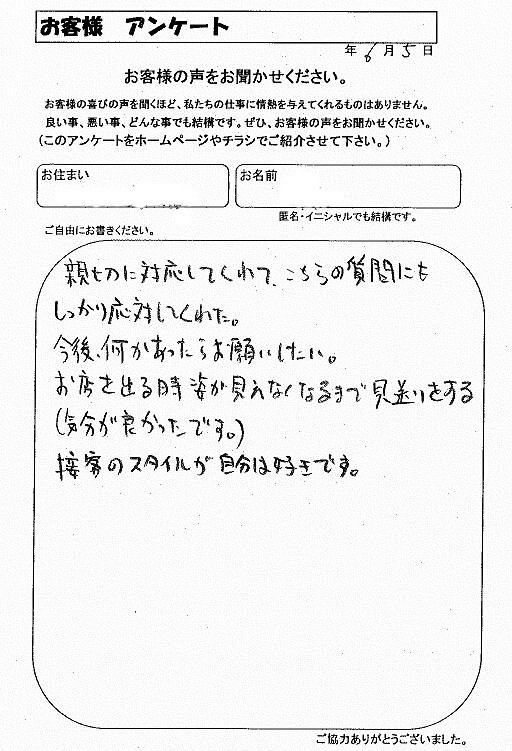 お客様 アンケート
年 6月 5日
お客様の声をお聞かせください。
お客様の喜びの声を聞くほど、私たちの仕事に情熱を与えてくれるものはありません。
良い事、悪い事、どんな事でも結構です。ぜひ、お客様の声をお聞かせください。
(このアンケートをホームページやチラシでご紹介させて下さい。)
お住まい
お名前
匿名・イニシャルでも結構です。
ご自由にお書きください。
親切に対応してくれて、こちらの質問にも
しっかり応対してくれた。
今後、何かあったらお願いしたい。
お店を出る時姿が見えなくなるまで見送りをする
(気分が良かったです。)
接客のスタイルが自分は好きです。
ご協力ありがとうございました。